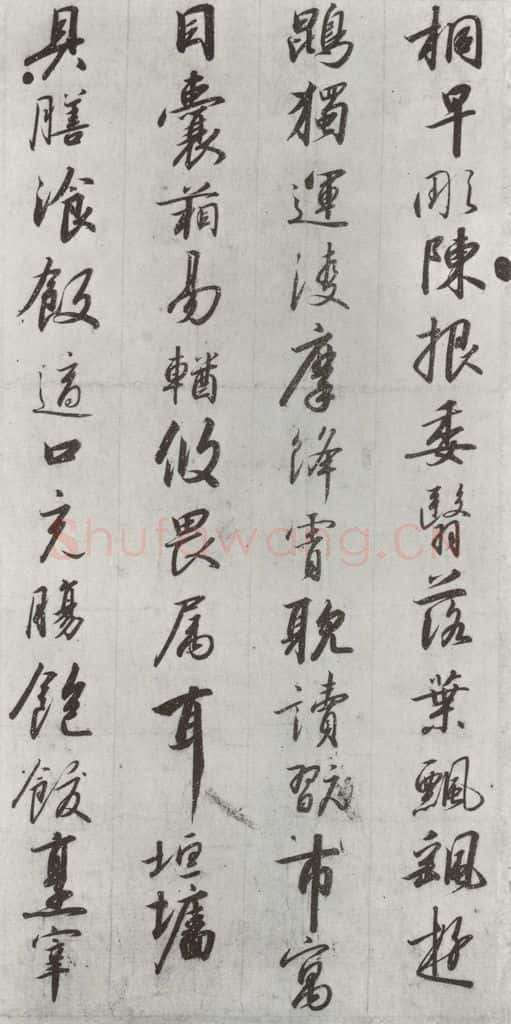 桐早彫陳根委翳落葉飄颻遊
鵾獨運淩摩絳霄耽讀翫市寓
目囊箱易輶攸畏属耳垣墻
具膳飡飯適口充腸飽飫烹宰
Shufawang.cn